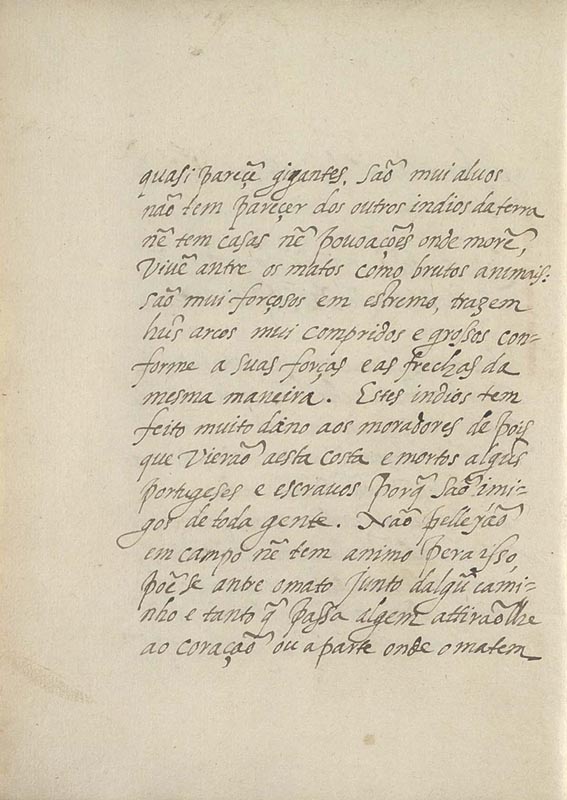 quasi pareçẽ gigantes. são mui aluos
não tem pareçer dos outros indios da terra
nẽ tem casas nẽ povoações onde morẽ,
vivẽ antre os matos como brutos animais:
são mui forçosos em estremo, trazem
hũs arcos mui compridos e grossos con-
forme a suas forças e as frechas da
mesma maneira. Estes indios tem
feito muito dãno aos moradores depois
que vierão a esta costa e mortos algũs
portugeses e escravos porq̃ são imi-
gos de toda gente. Não pellejão
em campo nẽ tem animo pera isso,
põẽse antre o mato junto dalgũ cami-
nho e tanto q̃ passa algem attirãolhe
ao coração ou a parte onde o matem